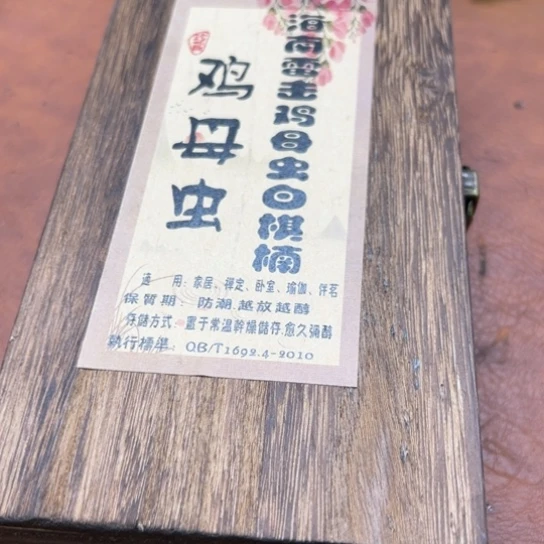 海南雷击鸡母虫白棋楠
鸡母虫
适 用：家居、禅定、卧室、瑜伽、伴茗
保質期：防潮，越放越醇
存储方式：置于常温幹燥储存，愈久彌醇
執行標準：QB/T1692.4-2010